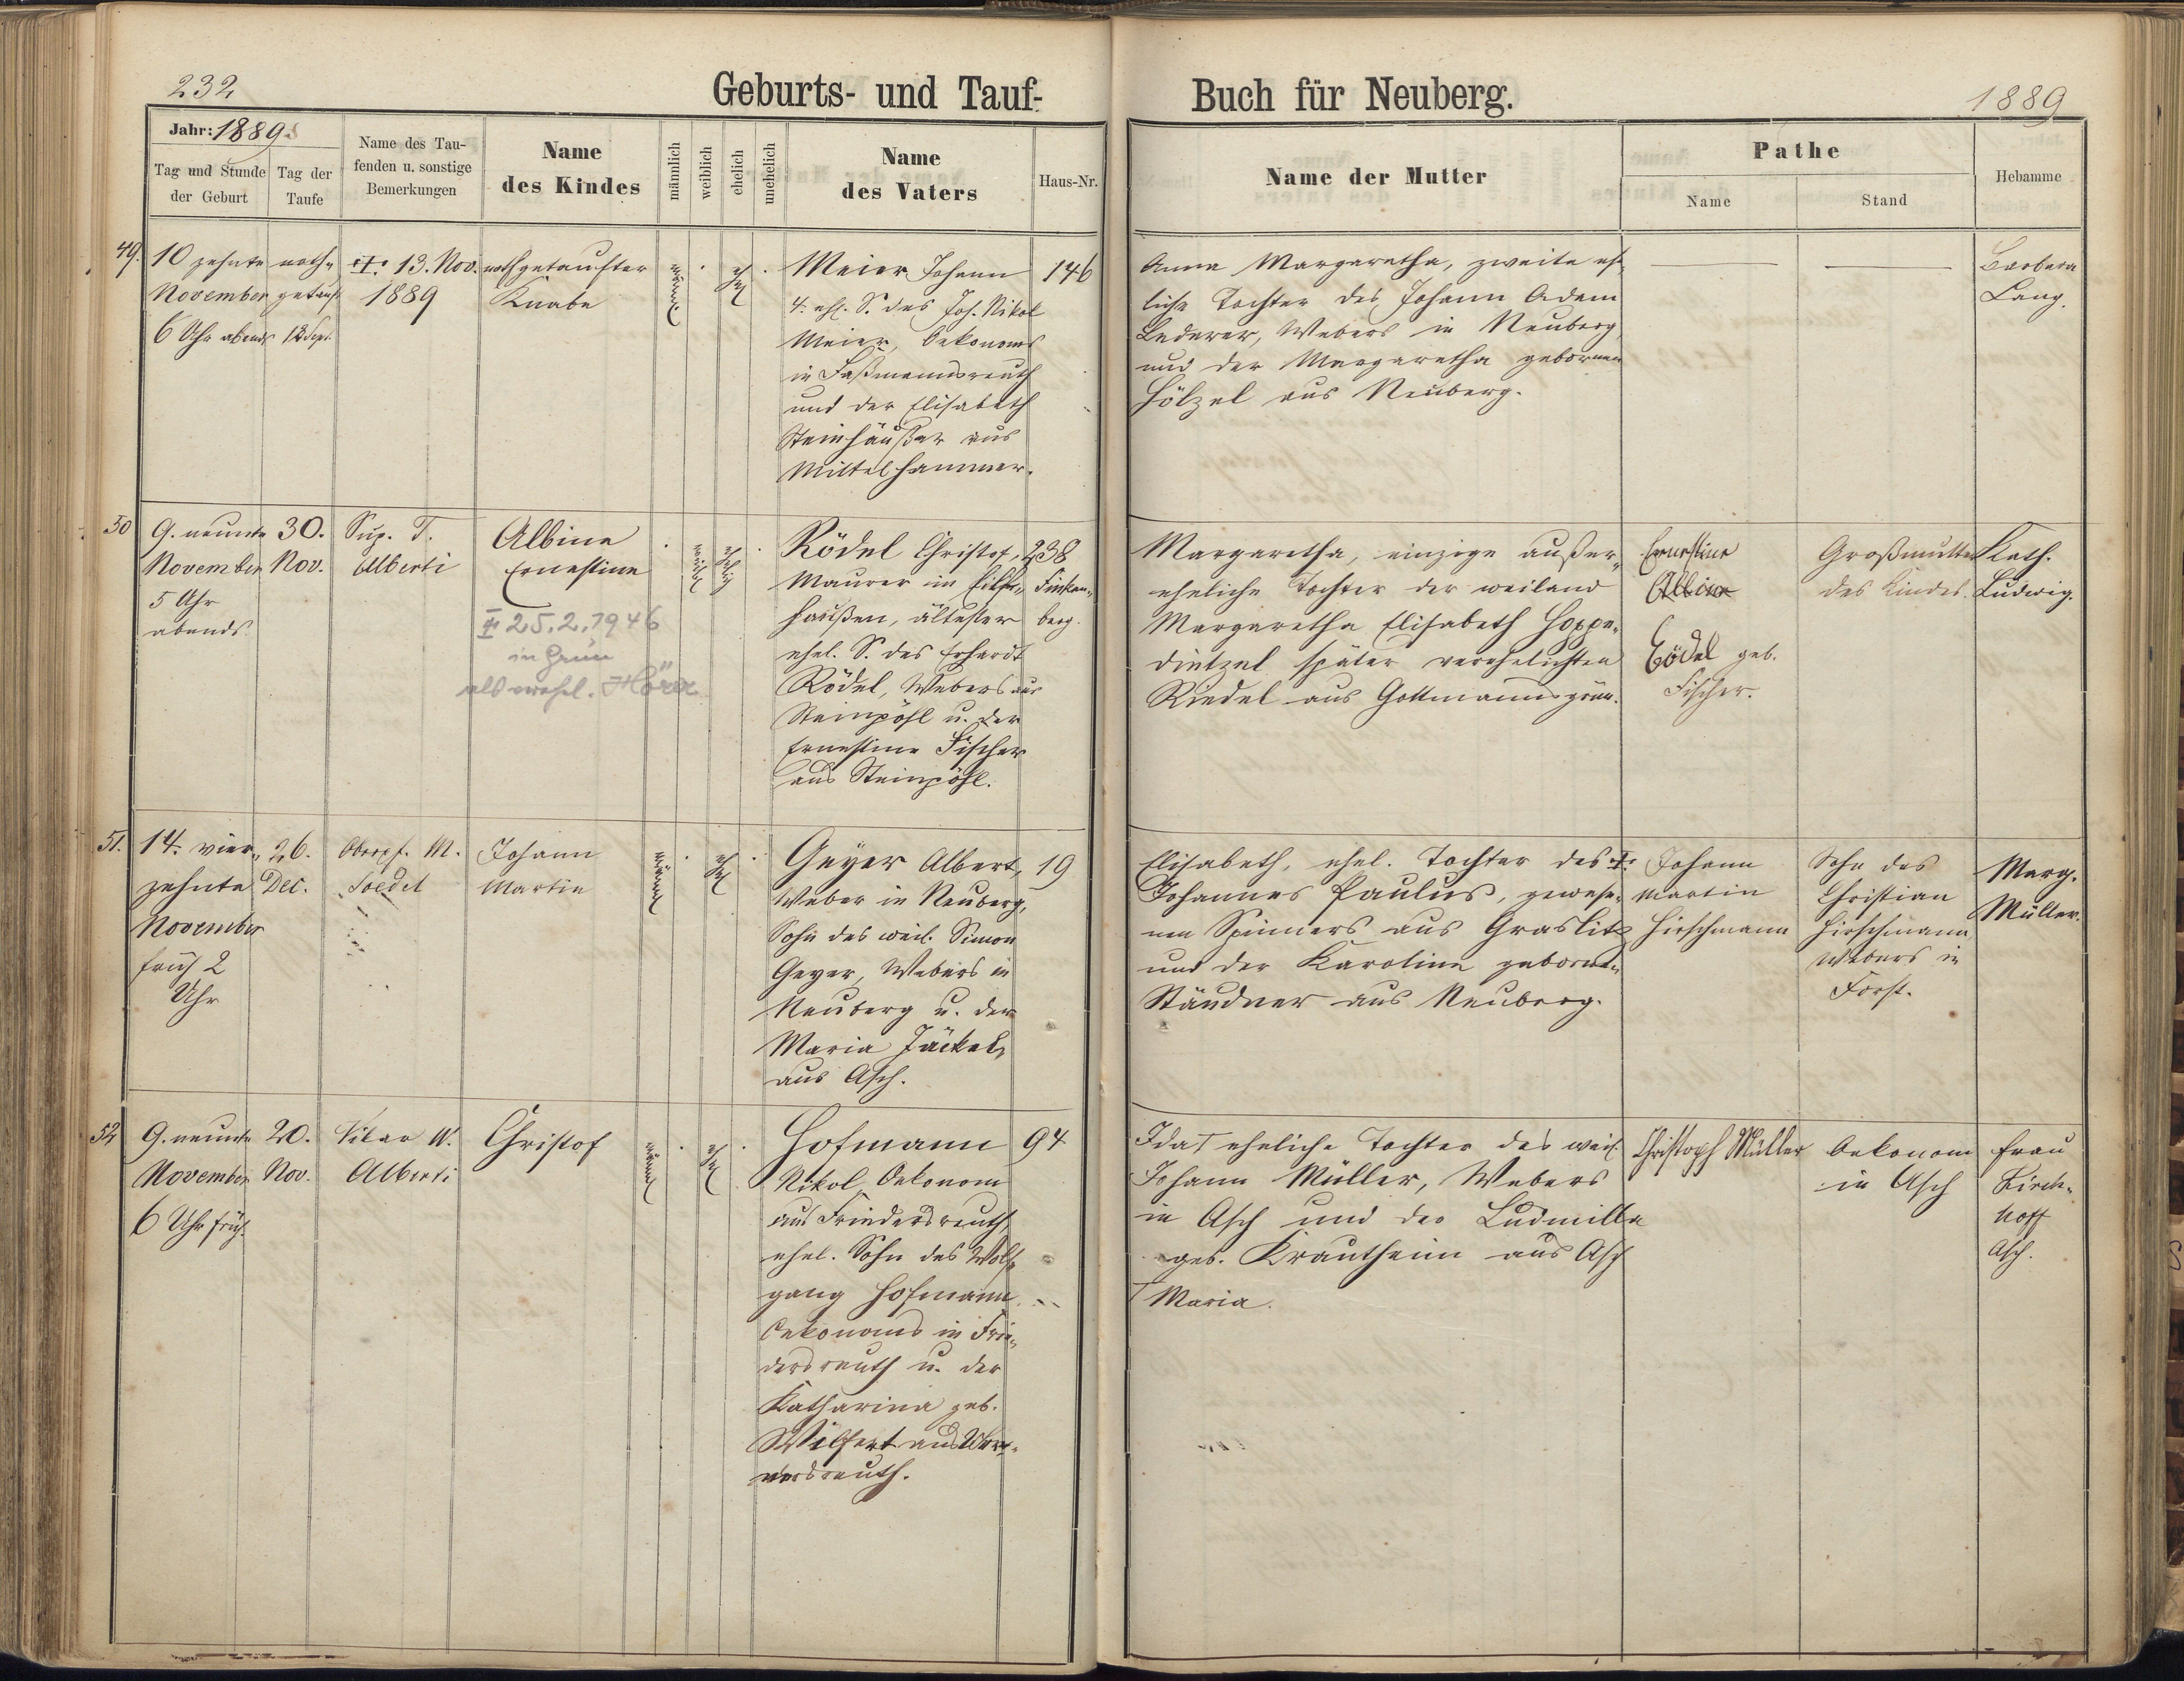 232
Geburts- und Tauf-
Buch für Neuberg.
1889
Jahr: 1889.
Tag und Stunde
der Geburt
Tag der
Taufe
Name des Tau-
fenden u. sonstige
Bemerkungen
Name
des Kindes
männlich
weiblich
ehelich
unehelich
Name
des Vaters
Haus-Nr.
Name der Mutter
Pathe
Name
Stand
Hebamme
49.
10 zehnte
November
6 Uhr abends
noth-
getauft
13. Nov.
1889
nothgetaufter
Knabe
männl.
ehel.
Meier Johann
4. ehl. S. des Joh. Nikol
Meier, Oekonoms
in Faßmannsreuth
und der Elisabeth
Steinhäußer aus
Mittelhammer.
146
Anna Margaretha, zweite eh-
liche Tochter des Johann Adam
Lederer, Webers in Neuberg,
und der Margaretha gebornen
Hölzel aus Neuberg.
Barbara
Lang.
50
9. neunte
November
5 Uhr
abends.
30.
Nov.
Sup. T.
Alberti
Albine
Ernestine
25.2.1946
in Grün
als verehel.
weiblich
ehelich
Rödel Christof,
Maurer in
häußen, ältester
ehel. S. des Erhardt
Rödel, Webers aus
Steinpöhl u. der
Ernestine Fischer
aus Steinpöhl.
238
Finken-
berg.
Margaretha, einzige außer-
eheliche Tochter der weiland
Margaretha Elisabeth Hoppe-
dietzel später verehelichten
Riedel aus Gottmannsgrün.
Ernestine
Albine
Rödel geb.
Fischer.
Großmutter
des Kindes.
Kath.
Ludwig.
51.
14. vier-
zehnte
November
früh 2
Uhr
26.
Dec.
Oberpf. M.
Soedel
Johann
Martin
männl.
ehel.
Geyer Albert,
Weber in Neuberg,
Sohn des weil. Simon
Geyer, Webers in
Neuberg u. der
Maria Jäckel,
aus Asch.
19
Elisabeth, ehel. Tochter des
Johannes Paulus, gewese-
nen Spinners aus Graslitz
und der Karolina gebornen
Stäudner aus Neuberg.
Johann
Martin
Hirschmann
Sohn des
Christian
Hirschmann,
Webers in
Forst.
Marg.
Müller.
52
9. neunte
November
6 Uhr früh.
20.
Nov.
Vikar W.
Alberti
Christof
männl.
ehel.
Hofmann
Nikol, Oekonom
aus Friedersreuth,
ehel. Sohn des Wolf-
gang Hofmann
Oekonoms in Frie-
dersreuth u. der
Katharina geb.
Wilfert aus Wer-
nersreuth.
94
Ida eheliche Tochter des weil.
Johann Müller, Webers
in Asch und der Ludmilla
geb. Krautheim aus Asch
Maria.
Christoph Müller
Oekonom
in Asch
Frau
Kirch-
hoff
Asch.